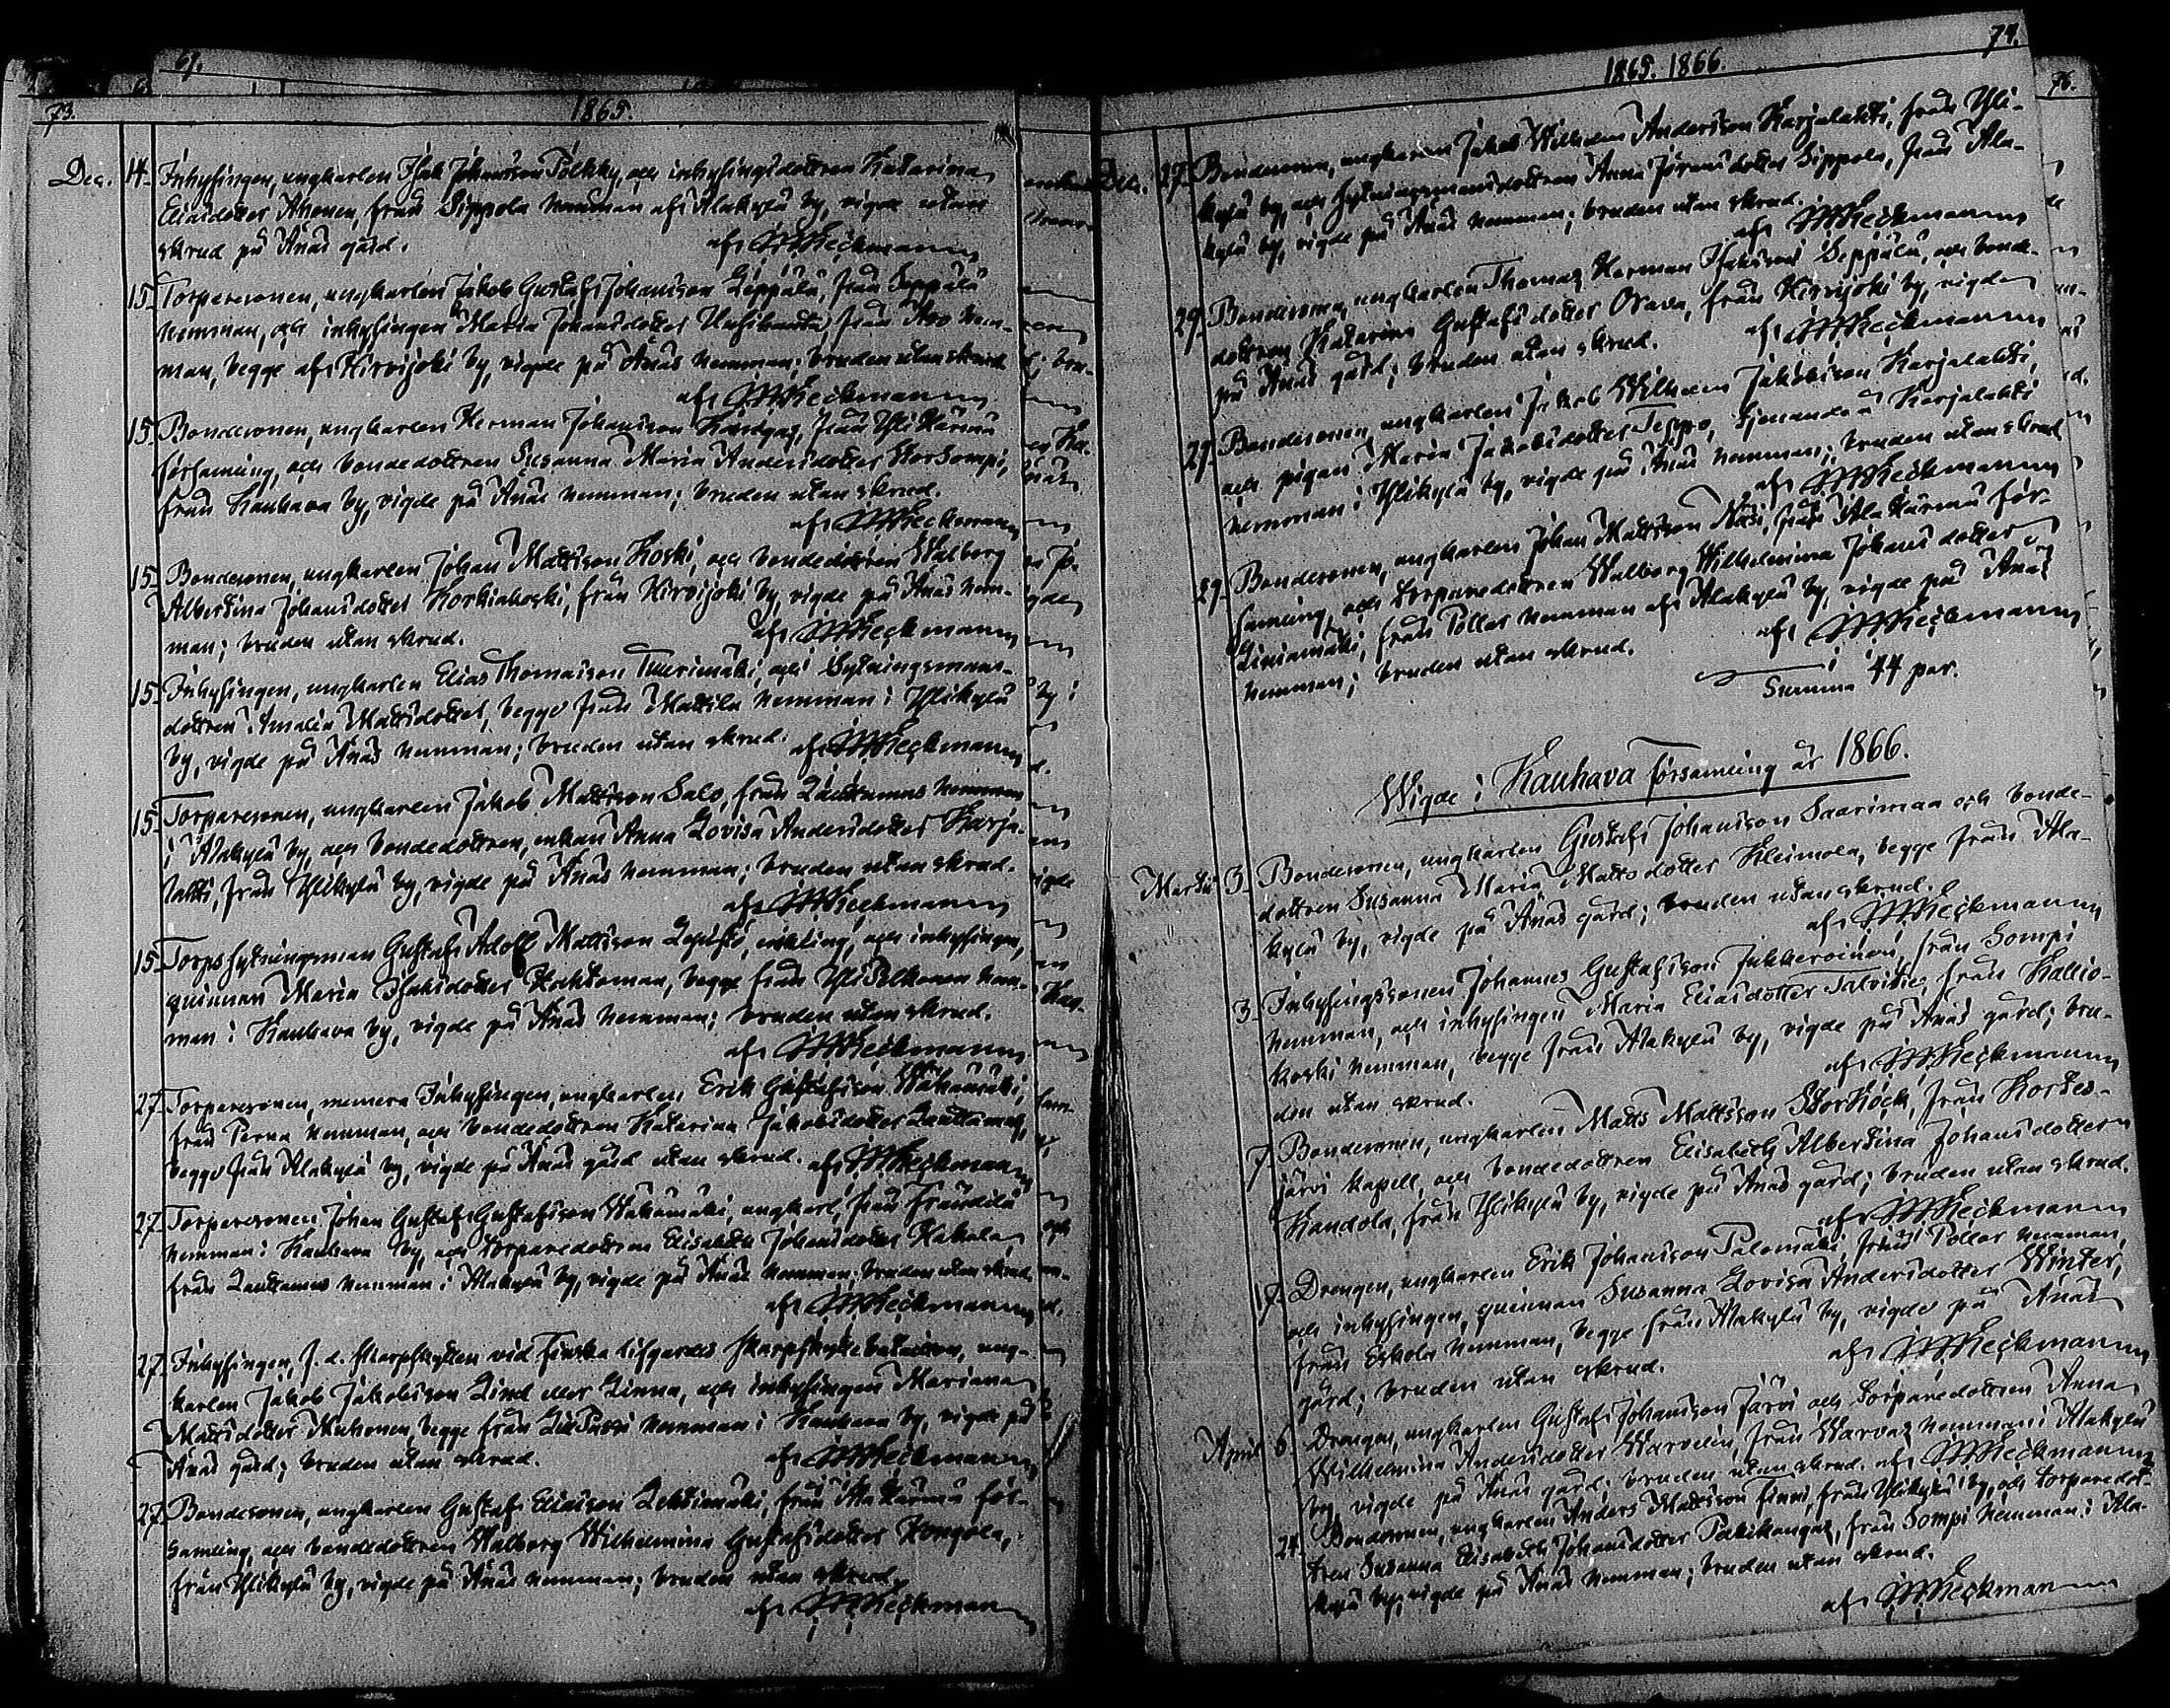 73.
1865.
Dec. 14. Inhysingen, ungkarlen Isak Johansson Pölkky, och inhysingsdottren Katarina
Eliasdotter Ahonen, från Sippola hemman af Alakylä by, vigde utan
skrud på Änäs gård.
af W Heickmann
15. Torparesonen, ungkarlen Jakob Gustaf Johansson Leppälä, från Seppälä
hemman, och inhysingen Maria Johansdotter från Aro hem-
man, begge af Hirvijoki by, vigde på Änäs hemman; bruden utan skrud
af W Heickmann
15. Bondesonen, ungkarlen Herman Johansson från Yli Härmä
församling, och bondedottren Susanna Maria Andersdotter Korsompi,
från Kauhava by, vigde på Änäs hemman; bruden utan skrud.
af W Heickmann
15. Bondesonen, ungkarlen Johan Mattsson Koski, och bondedottren Walborg
Albertina Johansdotter Korkiakoski, från Hirvijoki by, vigde på Änäs hem-
man; bruden utan skrud.
af W Heickmann
15. Inhysingen, ungkarlen Elias Thomasson Tuurimäki, och Sytningsmans-
dottren Amalia Mattsdotter, begge från Mattila hemman i Ylikylä
by, vigde på Änäs hemman; bruden utan skrud.
af W Heickmann
15. Torparesonen, ungkarlen Jakob Mattsson Salo, från Lauttamus hemman
i Alakylä by, och bondedottren, enkan Anna Lovisa Andersdotter Karja-
lahti, från Ylikylä by, vigde på Änäs hemman; bruden utan skrud.
af W Heickmann
15. Torpsytningsman Gustaf Adolf Mattsson Lepistö, enkling, och inhysingen,
quinnan Maria Isaksdotter begge från Yli Pelkonen hem-
man i Kauhava by, vigde på Änäs hemman; bruden utan skrud.
af W Heickmann
27. Torparesonen, numera Inhysingen, ungkarlen Erik Gustafsson Wähämäki,
från Perna hemman, och bondedottren Katarina Jakobsdotter Lauttamus,
begge från Alakylä by, vigde på Änäs gård utan skrud.
af W Heickmann
27. Torparesonen Johan Gustaf Gustafsson Wähämäki, ungkarl, från Frändilä
hemman i Kauhava by, och torparedottren Elisabeth Johansdotter Hakala,
från Lauttamus hemman i Alakylä by, vigde på Änäs hemman; bruden utan skrud.
af W Heickmann
27. Inhysingen, f. d. skarpskytten vid Finska lifgardes skarpskyttebataillon, ung-
karlen Jakob Jakobsson Lind eller Linna, och inhysingen Mariana
Mattsdotter Muhonen, begge från hemman i Kauhava by, vigde på
Änäs gård; bruden utan skrud.
af W Heickmann
27. Bondesonen, ungkarlen Gustaf Eliasson Lehtimäki, från Ala Härmä för-
samling, och bondedottren Walborg Wilhelmina Gustafsdotter Kongola,
från Ylikylä by, vigde på Änäs hemman; bruden utan skrud.
af W Heickmann
74.
1865. 1866.
Dec. 27. Bondesonen, ungkarlen Jakob Wilhelm Andersson Karjalahti, från Yli-
kylä by, och Sytningsmansdottren Anna Jöransdotter Sippola, från Ala-
kylä by, vigde på Änäs hemman; bruden utan skrud.
af W Heickmann
29. Bondesonen, ungkarlen Thomas Herman Isaksson Seppälä, och bonde-
dottren Katarina Gustafsdotter Orava, från Hirvijoki by, vigde
på Änäs gård; bruden utan skrud.
af W Heickmann
29. Bondesonen, ungkarlen Jakob Wilhelm Jakobsson Karjalahti,
och pigan Maria Jakobsdotter Teppo, tjenande å Karjalahti
hemman i Ylikylä by, vigde på Änäs hemman; bruden utan skrud
af W Heickmann
29. Bondesonen, ungkarlen Johan Mattsson Näsi, från Ala Härmä för-
samling, och torparedottren Walborg Wilhelmina Johansdotter
Liniamäki, från Pollar hemman af Alakylä by, vigde på Änäs
hemman; bruden utan skrud.
af W Heickmann
Summa 44 par.
Wigde i Kauhava församling år 1866.
Martii 3. Bondesonen, ungkarlen Gustaf Johansson Saarimaa och bonde-
dottren Susanna Maria Mattsdotter Kleimola, begge från Ala-
kylä by, vigde på Änäs gård; bruden utan skrud.
af W Heickmann
3. Inhysingssonen Johannes Gustafsson från Sompi
hemman, och inhysingen Maria Eliasdotter Talvitie, från Kallio-
koski hemman, begge från Alakylä by, vigde på Änäs gård; bru-
den utan skrud.
af W Heickmann
7. Bondesonen, ungkarlen Matts Mattsson Storhöök, från Kortes-
järvi kapell, och bondedottren Elisabeth Albertina Johansdotter
Kandola, från Ylikylä by, vigde på Änäs gård; bruden utan skrud.
af W Heickmann
17. Drengen, ungkarlen Erik Johansson Palomäki, från Pollar hemman,
och inhysingen, quinnan Susanna Lovisa Andersdotter Winter,
från Eskola hemman, begge från Alakylä by, vigde på Änäs
gård; bruden utan skrud.
af W Heickmann
April 6. Drengen, ungkarlen Gustaf Johansson Järvi och torparedottren Anna
Wilhelmina Andersdotter Warvelin, från Warvas hemman i Alakylä
by, vigde på Änäs gård; bruden utan skrud.
af W Heickmann
24. Bondesonen, ungkarlen Anders Mattsson Finni, från Ylikylä by, och torparedot-
tren Susanna Elisabeth Johansdotter Palikangas, från Sompi hemman i Ala-
kylä by, vigde på Änäs hemman; bruden utan skrud.
af W Heickmann
76.